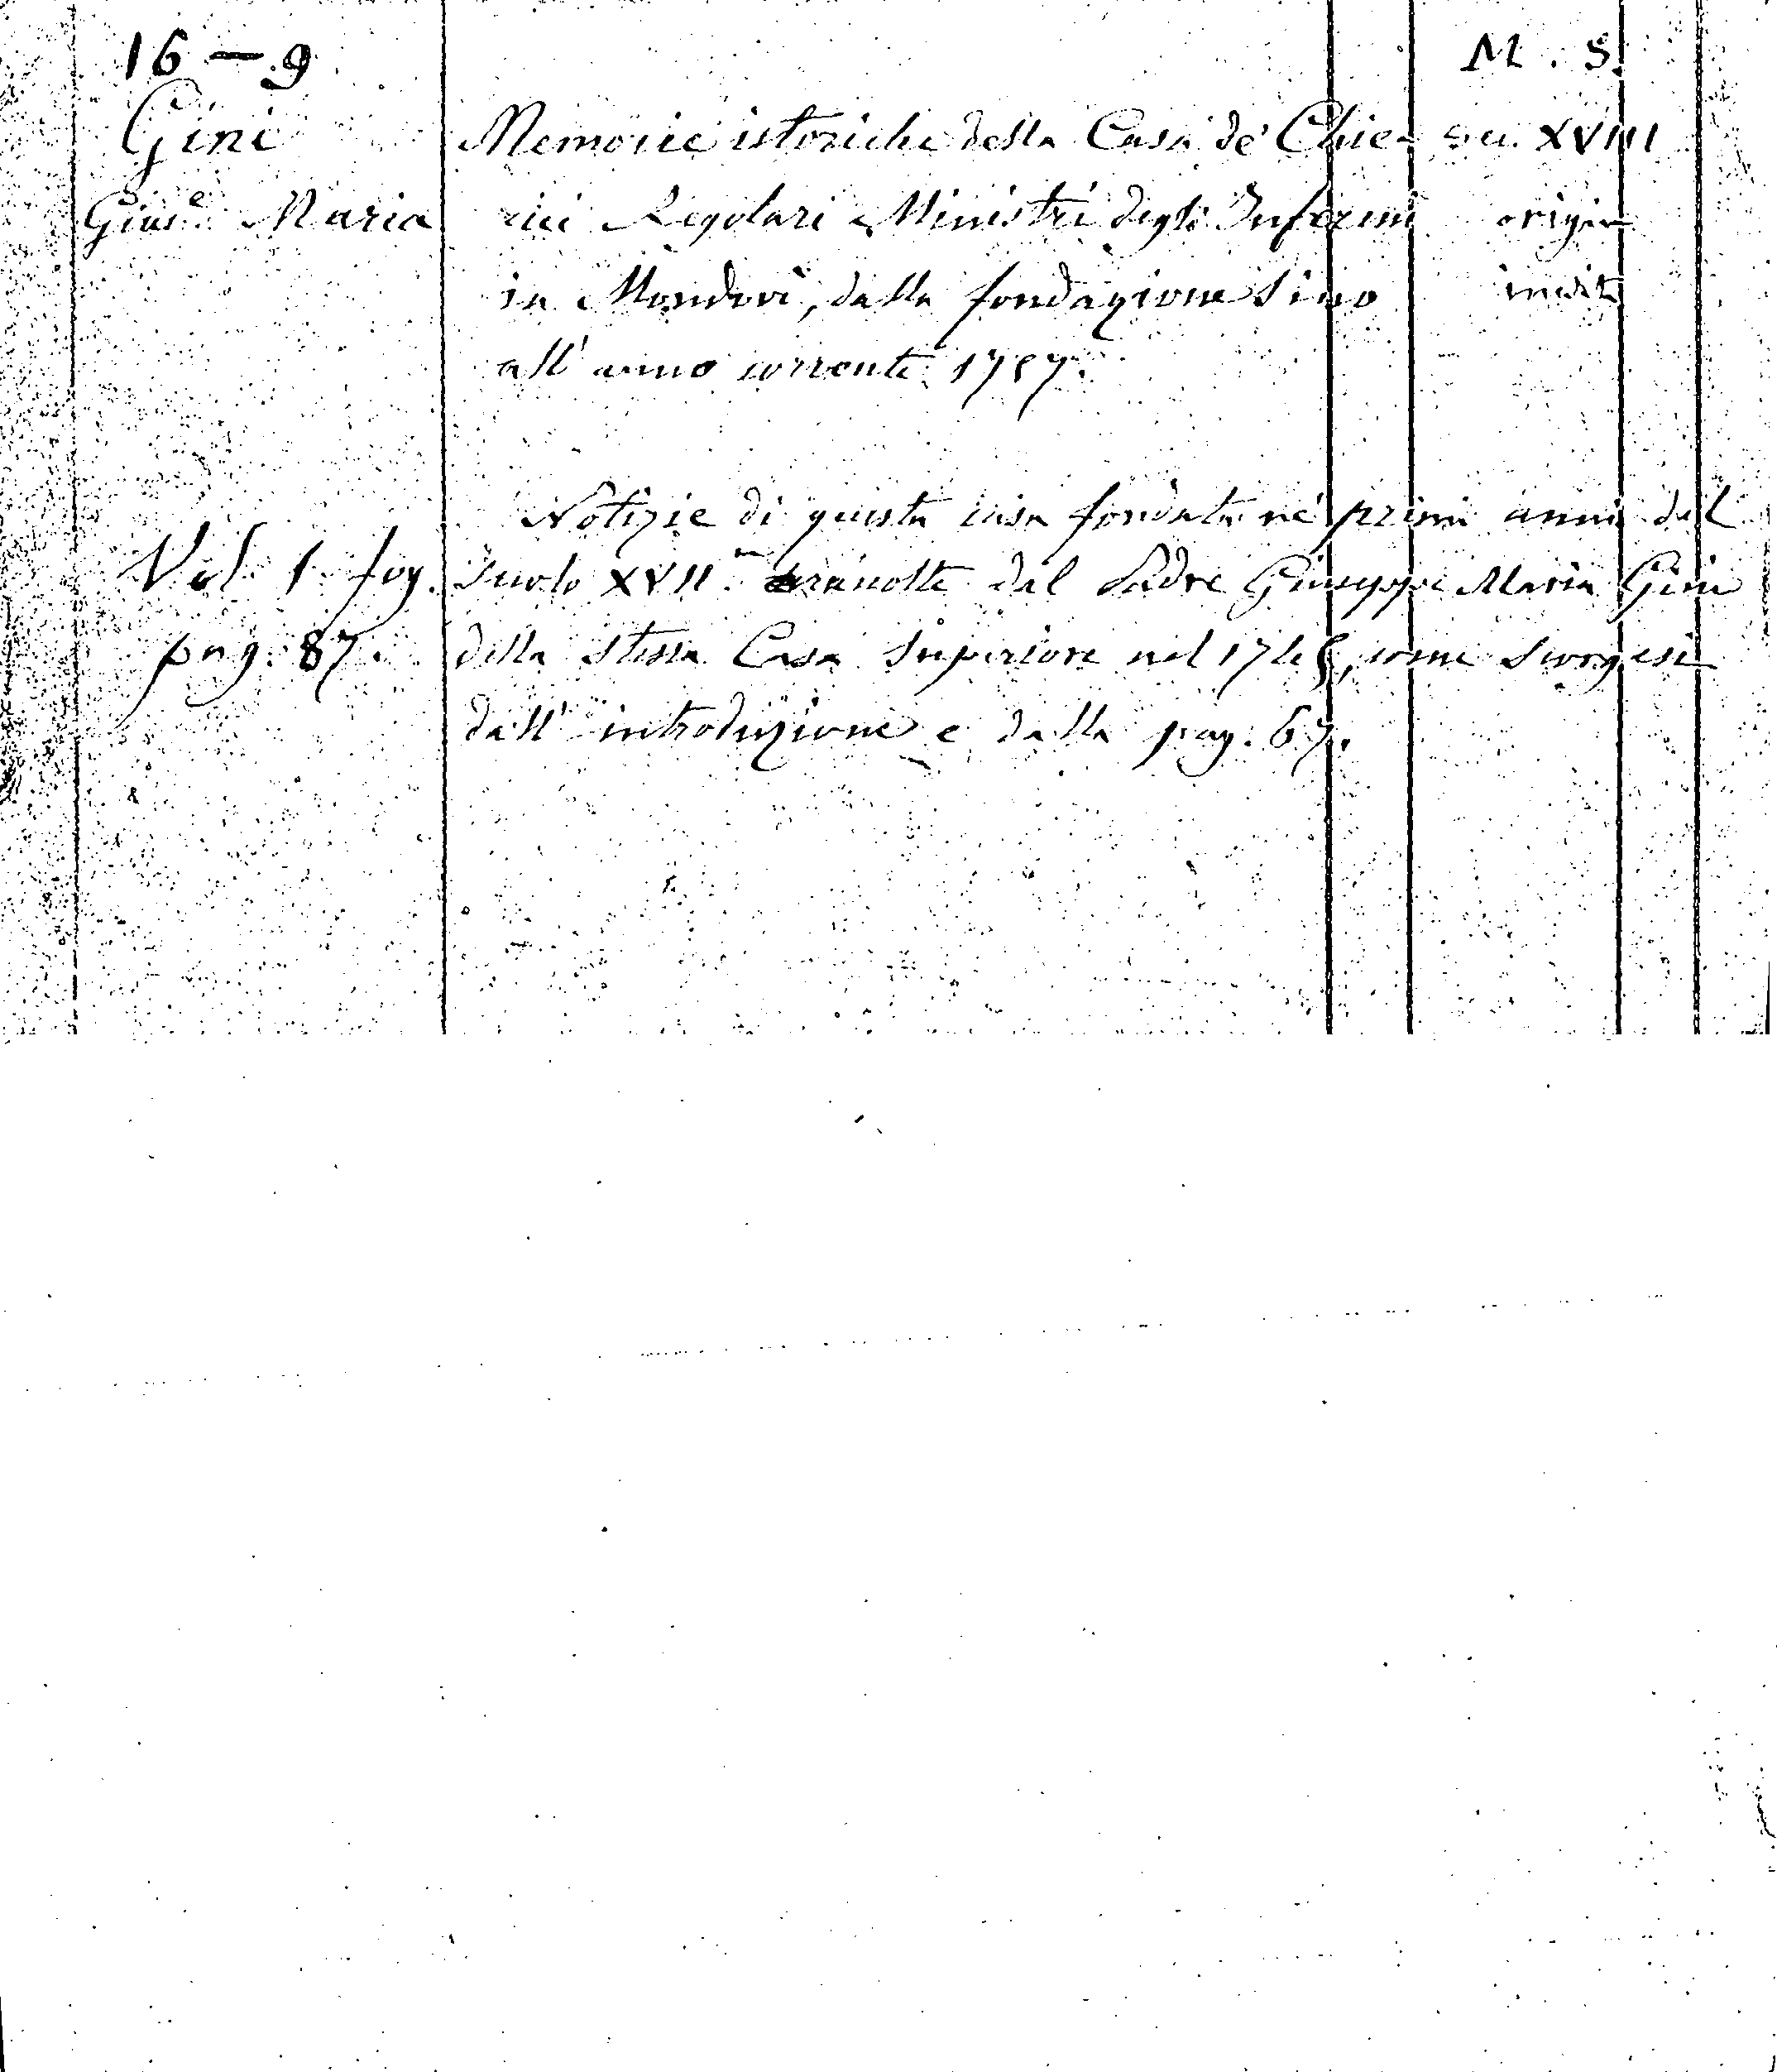 16 — 9
M. S.
Gini
Gius.e Maria
Memorie istoriche della Casa de' Chie-
rici Regolari Ministri degli Infermi
in Mondovi, dalla fondazione sino
all' anno corrente 1757.
sec. XVIII
origin
inedit
Vol. 1. fog.
pag. 87.
Notizie di questa casa fondata ne' primi anni del
Secolo XVII. raccolte dal Padre Giuseppe Maria Gini
della stessa Casa Superiore nel 1745, come scorgesi
dall' introduzione e dalla pag. 67.